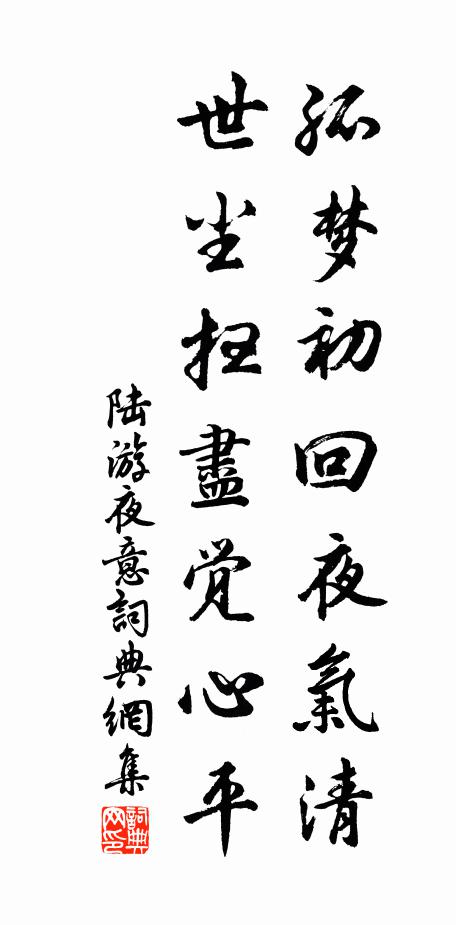 孤梦初回夜氣清
世尘扫盡觉心平
陆游夜意詞典網集
詞典网印